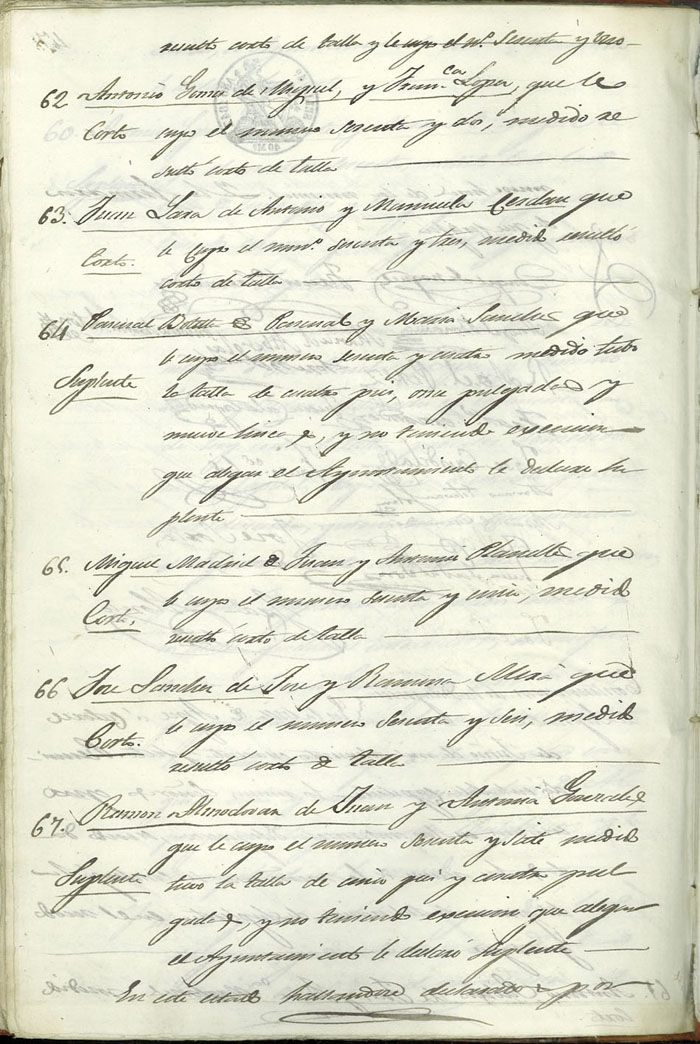 resultó corto de talla y le cupo el nº. Sesenta y uno-
62 Antonio Gomez de Miguel, y Fran.ca Lopez, que le
Corto cupo el numero sesenta y dos, medido re
sultó corto de talla
63. Juan Lara de Antonio y Manuela Cerdan que
le cupo el num.º sesenta y tres, medido resultó
Corto. corto de talla
64 Pascual Botella de Pascual y Maria Sanchez que
le cupo el numero sesenta y cuatro medido tubo
Suplente la talla de cuatro pies, once pulgadas y
nueve lineas, y no teniendo exencion
que alegar el Ayuntamiento le declaro su
plente
65. Miguel Madrid de Juan y Antonia Planelles que
le cupo el numero sesenta y cinco, medido
Corto. resultó corto de talla
66 Jose Sanchez de Jose y Ramona Mira que
le cupo el numero sesenta y seis, medido
Corto. resultó corto de talla
67. Ramon Almodovar de Juan y Antonia
que le cupo el numero sesenta y siete medido
Suplente tuvo la talla de cinco pies y cuatro pul
gadas, y no teniendo exencion que alegar
el Ayuntamiento le declaró Suplente
En este estado hallandose declarados por